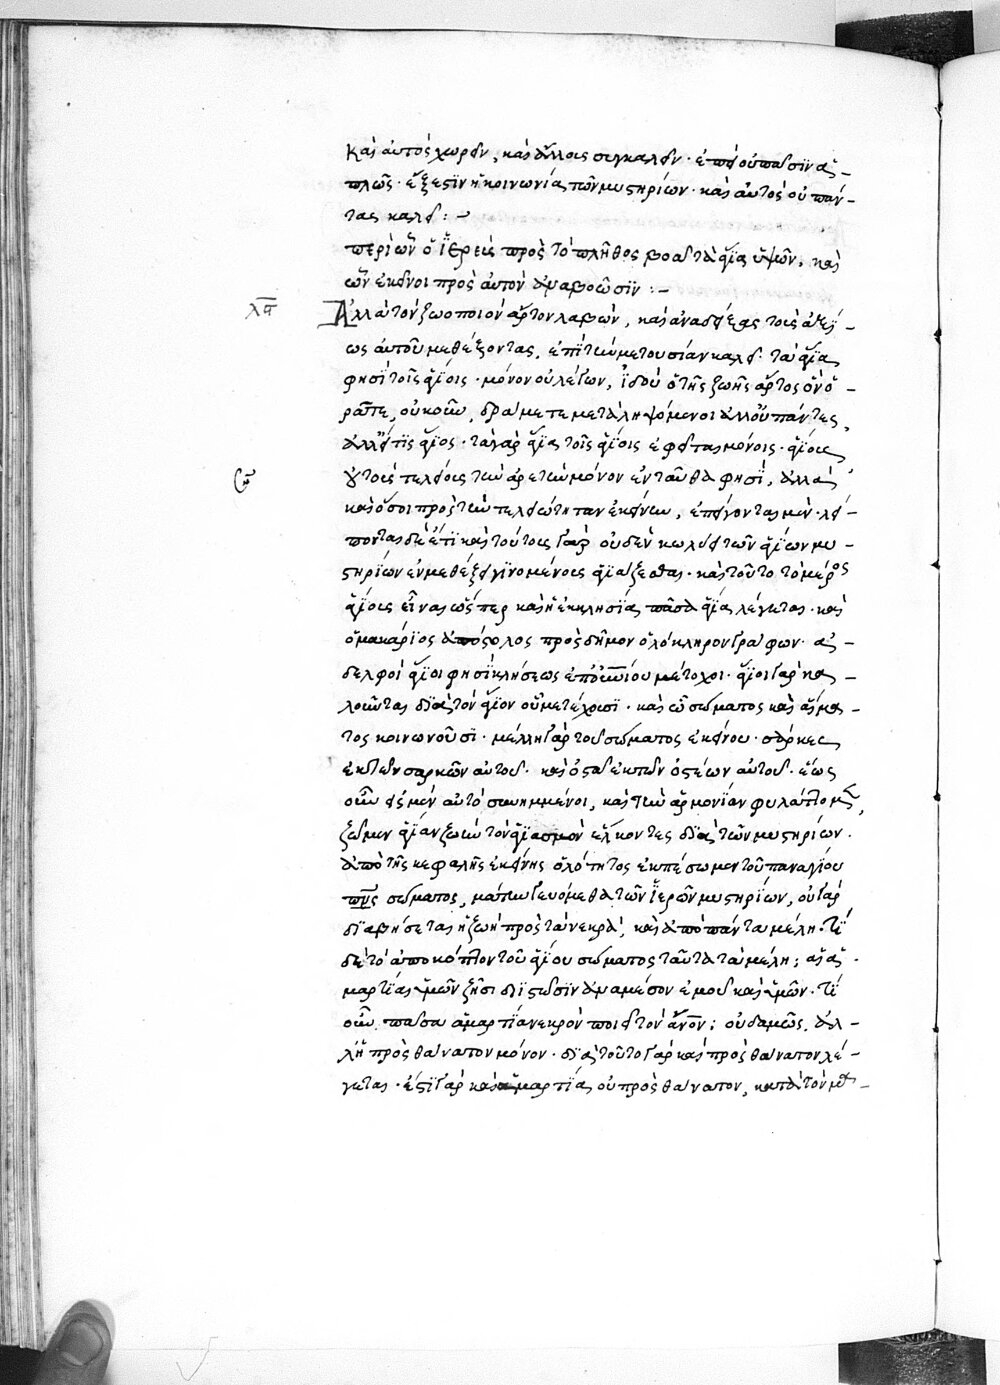 καὶ αὐτὸς χωρεῖν, καὶ ἄλλους συγκαλεῖν· ἐπεὶ οὐ πᾶσϊν ἁ-
πλῶς ἔξεστϊν ἡ κοινωνία τῶν μυστηρίων· καὶ αὐτὸς οὐ πάν-
τας καλεῖ :-
περὶ ὧν ὁ ἱερεὺς πρὸς τὸ πλῆθος βοᾷ τὰ ἅγϊα ὑψῶν, καὶ
ὧν ἐκεῖνοι πρὸς αὐτὸν ἀναβοῶσϊν :-
λα
Ἀλλὰ τὸν ζωοποιὸν ἄρτον λαβὼν, καὶ ἀναδείξας τοὺς ἀξϊ-
ως αὐτοῦ μεθέξοντας, ἐπὶ τὴν μετουσίαν καλεῖ· τὰ ἅγϊα
φησὶ τοῖς ἁγίοις· μόνον οὐ λέγων, ἰδοὺ ὁ τῆς ζωῆς ἄρτος ὃν ὁ-
ρᾶτε, οὐκοῦν δράμετε μεταληψόμενοι ἀλλ' οὐ πάντες,
ἀλλ' εἴ τϊς ἅγϊος· τὰ γὰρ ἅγϊα τοῖς ἁγίοις ἐφεῖται μόνοις· ἁγίους
οὐ τοὺς τελείους τὴν ἀρετὴν μόνον ἐνταῦθα φησϊ, ἀλλὰ
καὶ ὅσοι πρὸς τὴν τελειότητα ἐκείνην, ἐπείγονται μὲν· λεί-
πονται δὲ ἔτϊ καὶ τούτους γὰρ οὐδὲν κωλύει τῶν ἁγίων μυ-
στηρίων ἐν μεθέξει γϊνομένους ἁγϊάζεσθαι· καὶ τοῦτο τὸ μέρος
ἁγίους εἶναι ὥσπερ καὶ ἡ ἐκκλησϊα πᾶσα ἁγϊα λέγεται· καὶ
ὁ μακάρϊος ἀπόστολος πρὸς δῆμον ὁλόκληρον γράφων· ἀ-
δελφοὶ ἅγϊοι φησϊ κλήσεως ἐπουρανίου μέτοχοι· ἅγϊοι γὰρ κα-
λοῦνται δϊὰ τὸν ἅγϊον οὗ μετέχουσϊ· καὶ οὗ σώματος καὶ αἵμα-
τος κοινωνοῦσϊ· μέλη γὰρ τοῦ σώματος ἐκείνου· σάρκες
ἐκ τῶν σαρκῶν αὐτοῦ· καὶ ὀστᾶ ἐκ τῶν ὀστέων αὐτοῦ· ἕως
οὖν ἐσμὲν αὐτῷ συνημμένοι, καὶ τὴν ἁρμονϊαν φυλάττομεν,
ζῶμεν ἁγϊαν ζωὴν τὸν ἁγϊασμὸν ἕλκοντες δϊὰ τῶν μυστηρίων·
ἀπὸ τῆς κεφαλῆς ἐκείνης
ὁλότητος ἐκπέσωμεν τοῦ παναγίου
σώματος, μάτην γευόμεθα τῶν ἱερῶν μυστηρϊων, οὐ γὰρ
δϊαβήσεται ἡ ζωὴ πρὸς τὰ νεκρὰ, καὶ ἀποκοπέντα μέλη. Τϊ
δὲ τὸ ἀποκόπτον τοῦ ἁγίου σώματος ταῦτα τὰ μέλη; αἱ ἁ-
μαρτίαι ὑμῶν φησι δϊϊστῶσϊν ἀναμέσον ἐμοῦ καὶ ὑμῶν. Τϊ
οὖν πᾶσα ἁμαρτϊα νεκρὸν ποιεῖ τὸν ἄνθρωπον; οὐδαμῶς, ἀλ-
λ' ἡ πρὸς θάνατον μόνον· δϊὰ τοῦτο γὰρ καὶ πρὸς θάνατον λέ-
γεται· ἔστϊ γὰρ καὶ ἁμαρτϊα οὐ πρὸς θάνατον, κατὰ τὸν μα-